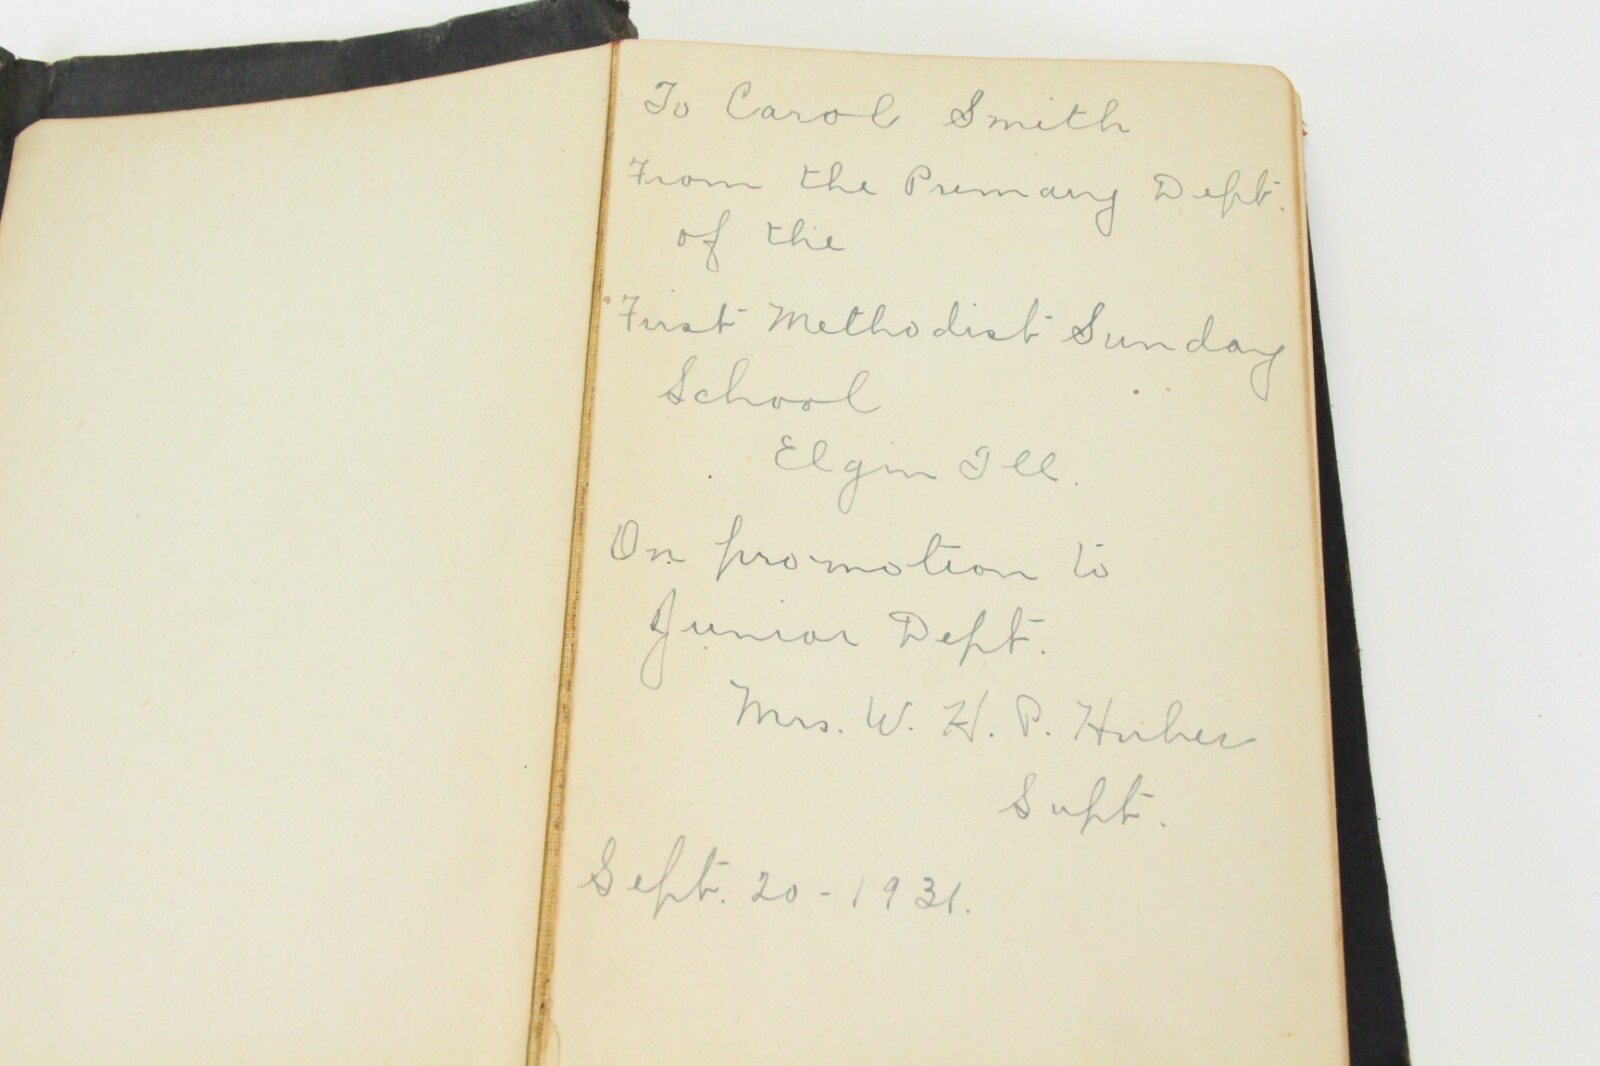 To Carol Smith
From the Primary Dept.
of the
First Methodist Sunday
School
Elgin Ill.
On promotion to
Junior Dept.
Mrs. W. H. P. Huber
Supt.
Sept. 20-1931.